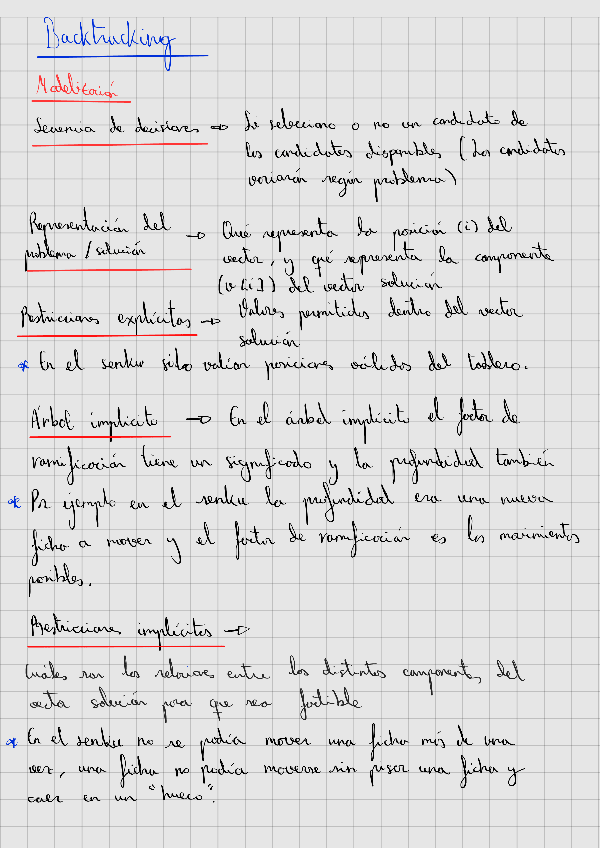 Backtracking
Modelización
Secuencia de decisiones → Se selecciona o no un candidato de
los candidatos disponibles (Los candidatos
variarán según problema)
Representación del
problema / solución → Qué representa la posición (i) del
vector, y qué representa la componente
(v[i]) del vector solución
Restricciones explícitas → Valores permitidos dentro del vector
solución
* En el senku sólo valían posiciones válidas del tablero.
Árbol implícito → En el árbol implícito el factor de
ramificación tiene un significado y la profundidad también
* Por ejemplo en el senku la profundidad era una nueva
ficha a mover y el factor de ramificación es los movimientos
posibles.
Restricciones implícitas →
Cuales son las relaciones entre los distintos componentes del
vector solución para que sea factible
* En el senku no se podía mover una ficha más de una
vez, una ficha no podía moverse sin pisar una ficha y
caer en un "hueco".